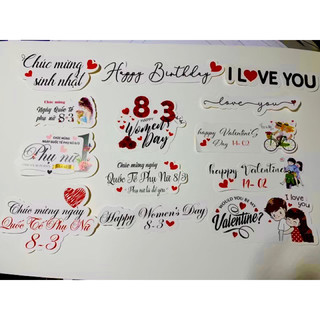 Chúc mừng
sinh nhật
Happy Birthday
I LOVE YOU
love you
Chúc mừng
Ngày Quốc tế
phụ nữ 8-3
8.3
HAPPY
Women's
Day
happy Valentine's
Day 14-02
Phụ nữ
Chúc mừng ngày
Quốc Tế Phụ Nữ 8/3
happy Valentine's
14-02
Chúc mừng ngày
Quốc Tế Phụ Nữ
8-3
Happy Women's Day
8-3
WOULD YOU BE MY
Valentine?
I love
you